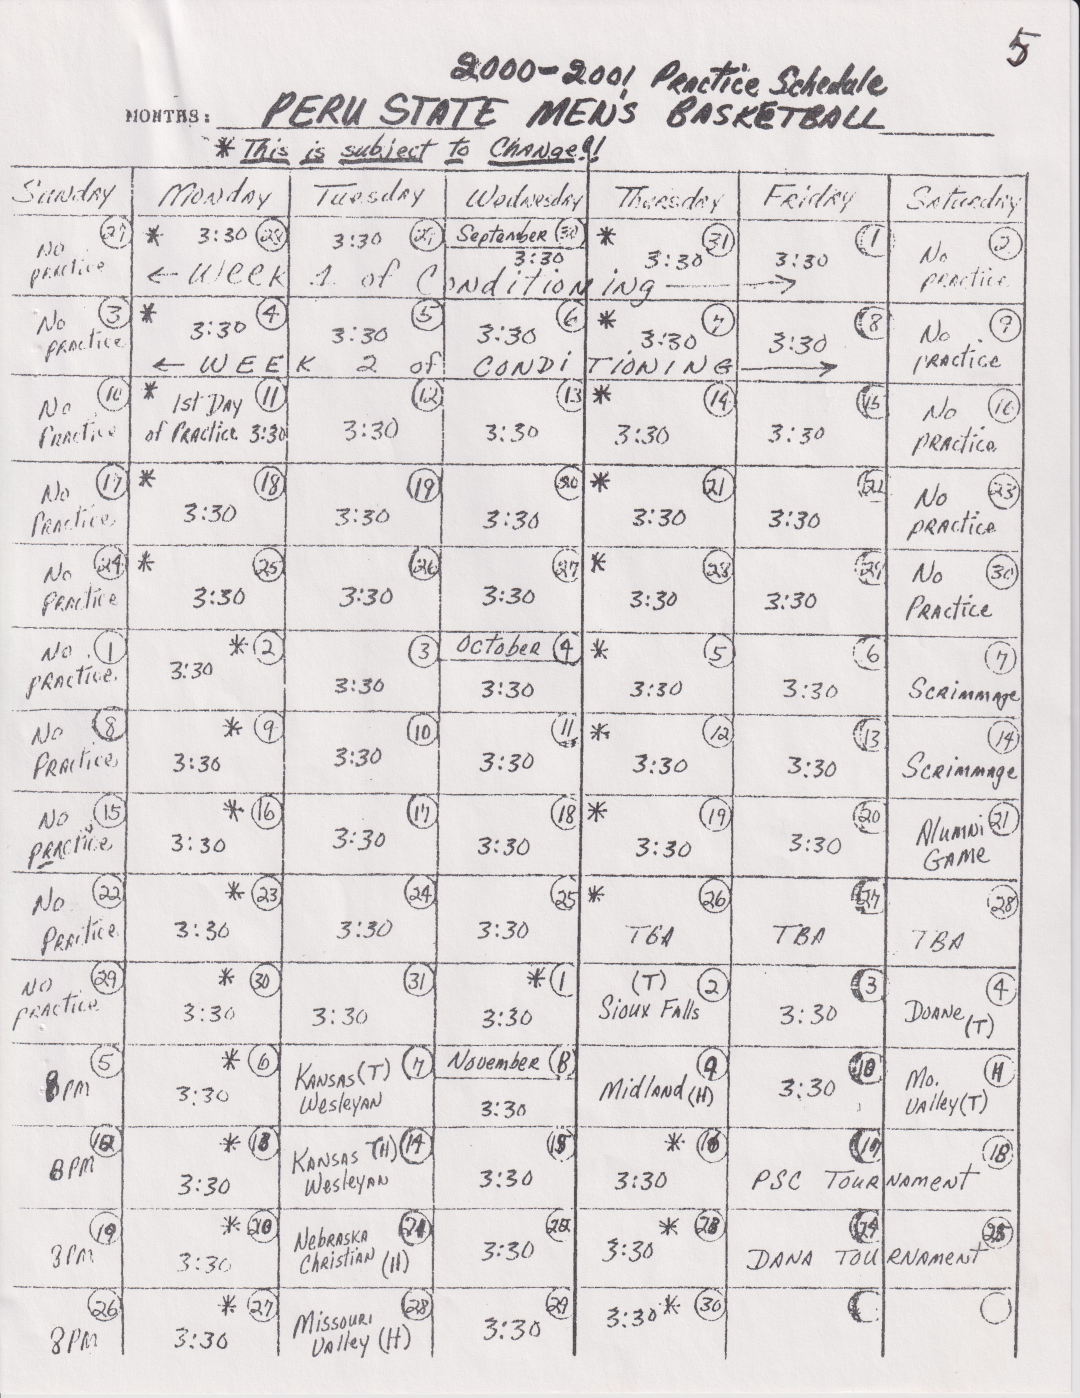 5
2000-2001 Practice Schedule
MONTHS: PERU STATE MEN'S BASKETBALL
* This is subject to Change!!
Sunday Monday Tuesday Wednesday Thursday Friday Saturday
27 * 3:30 28 3:30 29 September 30 * 31 1 2
No practice 3:30 3:30 3:30 No practice
← WEEK 1 of Conditioning →
No practice 3 * 3:30 4 3:30 5 3:30 6 * 3:30 7 3:30 8 No practice 9
← WEEK 2 of CONDITIONING →
No Practice 10 * 1st Day 11 12 13 * 14 15 No practice 16
of Practice 3:30 3:30 3:30 3:30 3:30
No Practice 17 * 3:30 18 3:30 19 3:30 20 * 3:30 21 3:30 22 No practice 23
No Practice 24 * 3:30 25 3:30 26 3:30 27 * 3:30 28 3:30 29 No Practice 30
No practice 1 3:30 * 2 3:30 3 October 4 3:30 * 3:30 5 3:30 6 Scrimmage 7
No Practice 8 3:30 * 9 3:30 10 3:30 11 * 3:30 12 3:30 13 Scrimmage 14
No Practice 15 3:30 * 16 3:30 17 3:30 18 * 3:30 19 3:30 20 Alumni Game 21
No Practice 22 3:30 * 23 3:30 24 3:30 25 * TBA 26 TBA 27 TBA 28
No practice 29 3:30 * 30 3:30 31 3:30 * 1 (T) Sioux Falls 2 3:30 3 Doane (T) 4
8PM 5 3:30 * 6 Kansas (T) Wesleyan 7 November 8 3:30 Midland (H) 9 3:30 10 Mo. Valley (T) 11
8PM 12 3:30 * 13 Kansas (H) Wesleyan 14 3:30 15 3:30 * 16 17 18
PSC TOURNAMENT
8PM 19 3:30 * 20 Nebraska Christian (H) 21 3:30 22 3:30 * 23 24 25
DANA TOURNAMENT
8PM 26 3:30 * 27 Missouri Valley (H) 28 3:30 29 3:30 * 30